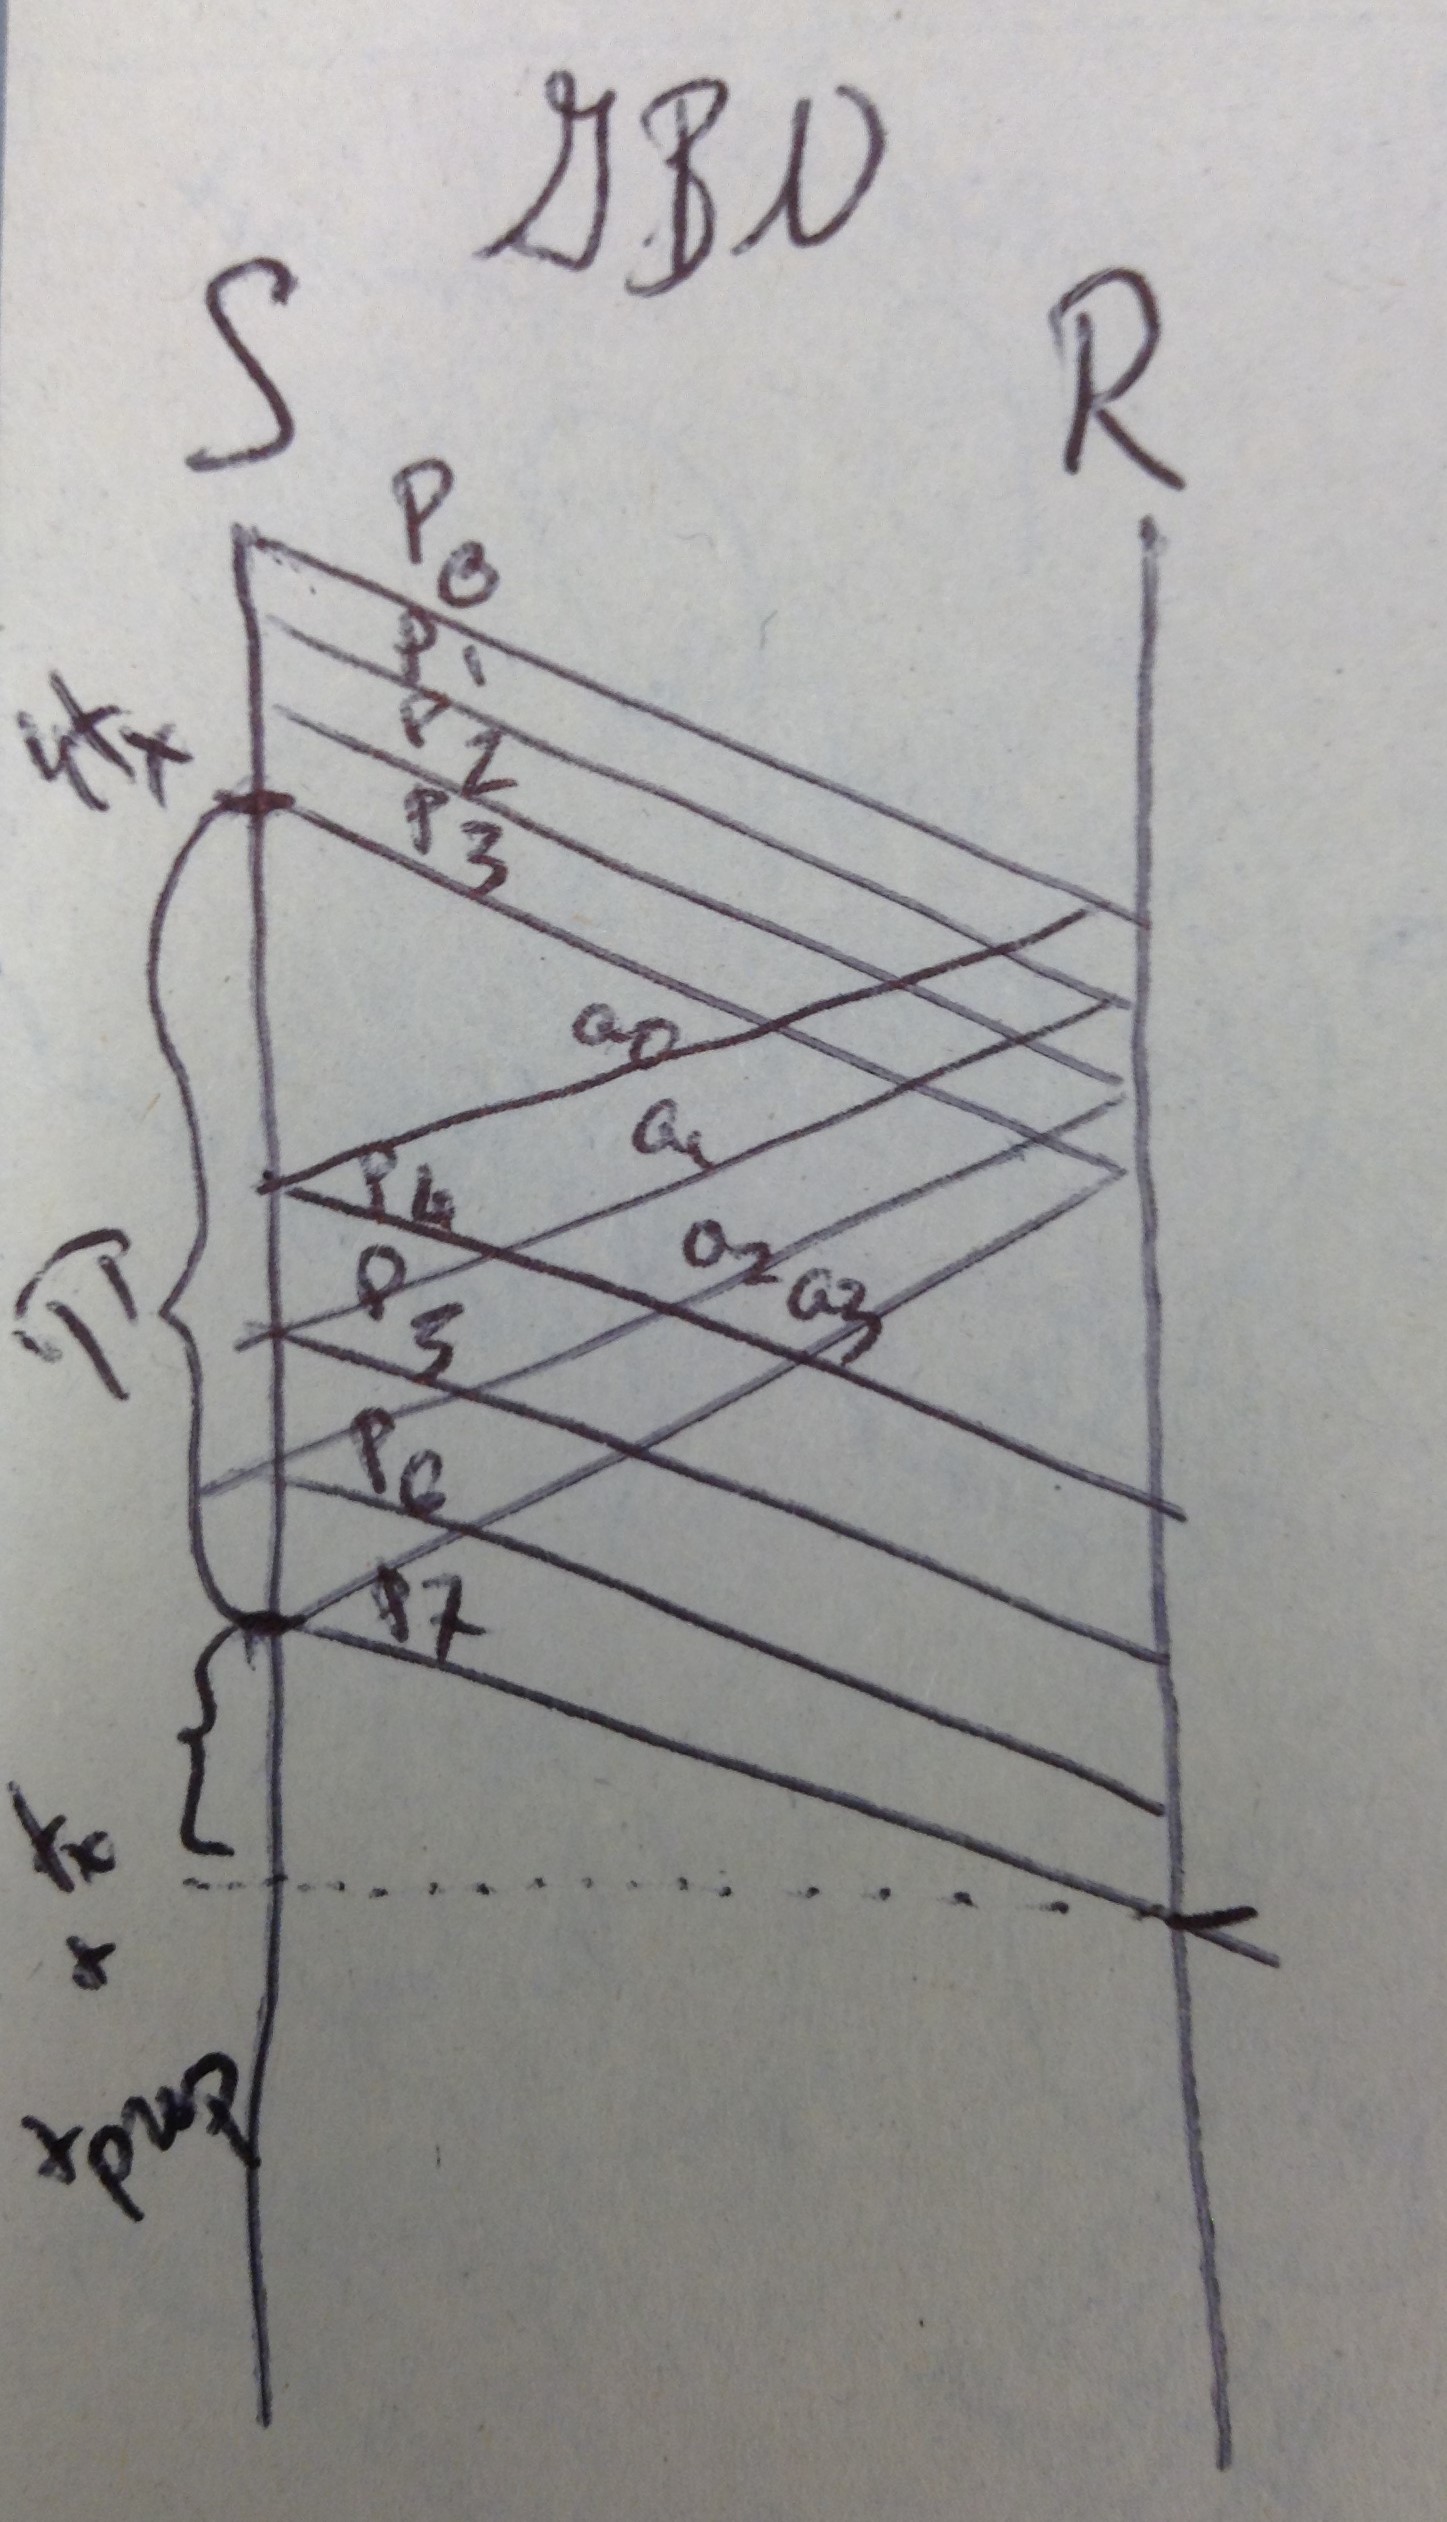 GBN
S R
P0
P1
P2
4tx
P3
a0
a1
P4
a2
a3
P5
P6
P7
tx
+
tprop